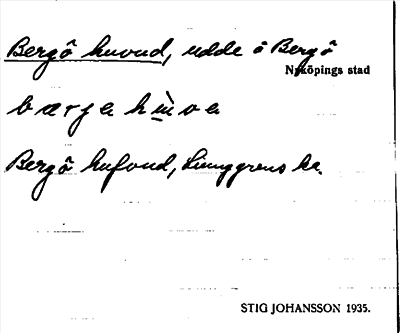 Bergö huvud, udde å Bergö
Nyköpings stad
Bergö hufvud, Ljunggrens ka.
STIG JOHANSSON 1935.